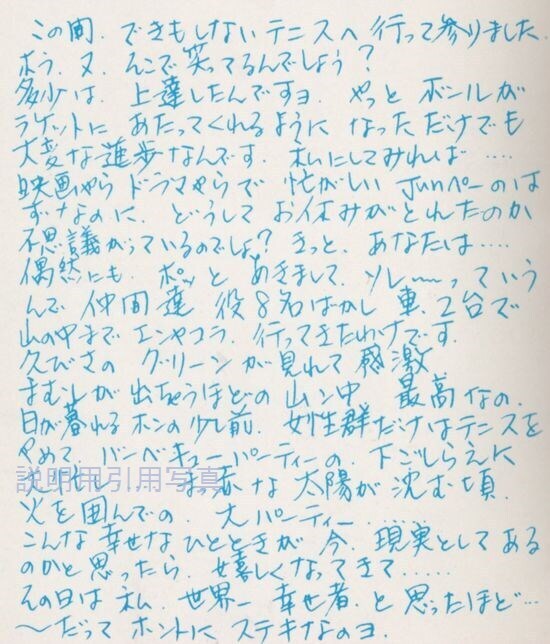 この間、できもしないテニスへ行って参りました
ホラ、又、そこで笑ってるんでしょう?
多少は、上達したんですョ. やっとボールが
ラケットにあたってくれるようになっただけでも
大変な進歩なんです. 私にしてみれば‥‥
映画やらドラマやらで忙がしいJunペーのは
ずなのに、どうしてお休みがとれたのか
不思議がっているのでしょ? きっと、あなたは‥‥
偶然にも、ポッとあきまして、ソレ〜〜っていう
んで仲間達役8名ばかし車、2台で
山の中までエンヤコラ、行ってきたわけです.
久びさのグリーンが見れて感激
まむしが出ちゃうほどの山ン中 最高なの.
日が暮れるホンの少し前、女性群だけはテニスを
やめて、バーベキューパーティーの、下ごしらえに
説明用引用写真
まっ赤な太陽が沈む頃、
火を囲んでの、大パーティー……
こんな幸せなひとときが今、現実としてある
のかと思ったら、嬉しくなってきて‥‥‥
その日は私、世界一幸せ者、と思ったほど…
〜だってホントにステキなのヨ.